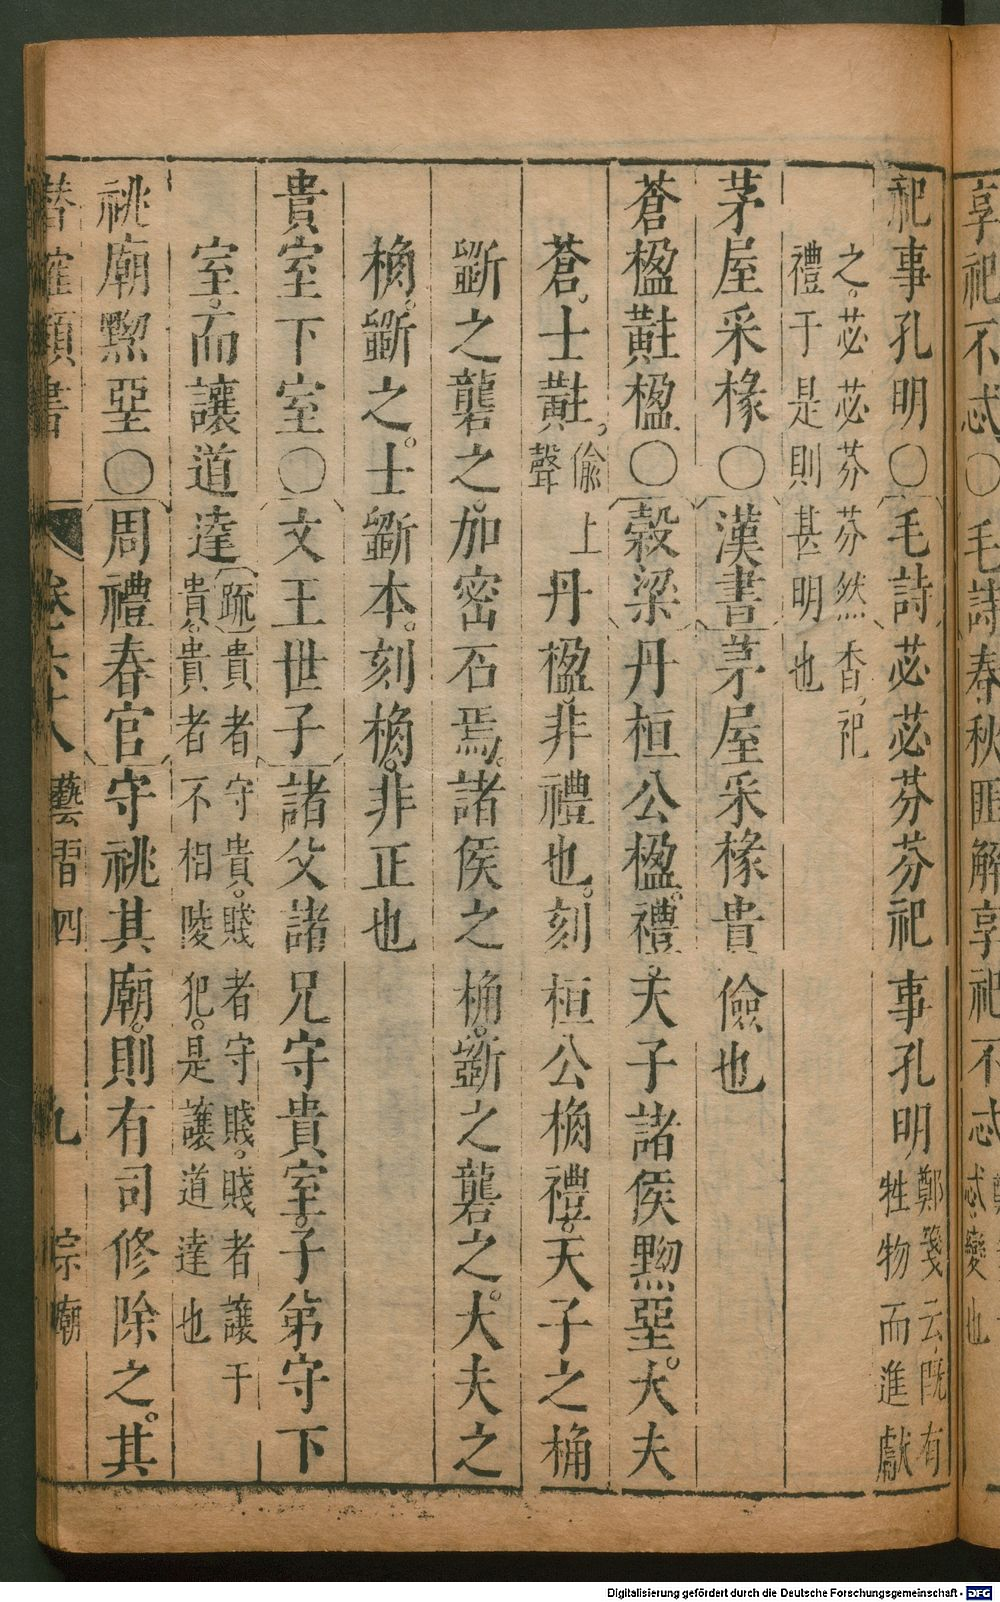 享祀不忒〇毛詩春秋匪解享祀不忒
忒變也
祀事孔明〇毛詩苾苾芬芬祀事孔明鄭箋云既有
牲物而進獻
之。苾苾芬芬然香。祀
禮于是則甚明也
茅屋采椽〇漢書茅屋采椽貴儉也
蒼楹黈楹〇榖梁丹桓公楹。禮。天子諸侯黝堊。大夫
蒼。士黈。偷上
聲
丹楹。非禮也。刻桓公桷禮。天子之桷
斲之礱之。加密石焉。諸侯之桷。斲之礱之。大夫之
桷。斲之。士斲本。刻桷。非正也
貴室下室〇文王世子諸父諸兄守貴室。子弟守下
室。而讓道達疏貴者守貴。賤者守賤。賤者讓于
貴。貴者不相陵犯。是讓道達也
祧廟黝堊〇周禮春官守祧其廟。則有司修除之。其
卷六十八 藝習四 九 宗廟
Digitalisierung gefördert durch die Deutsche Forschungsgemeinschaft - DFG